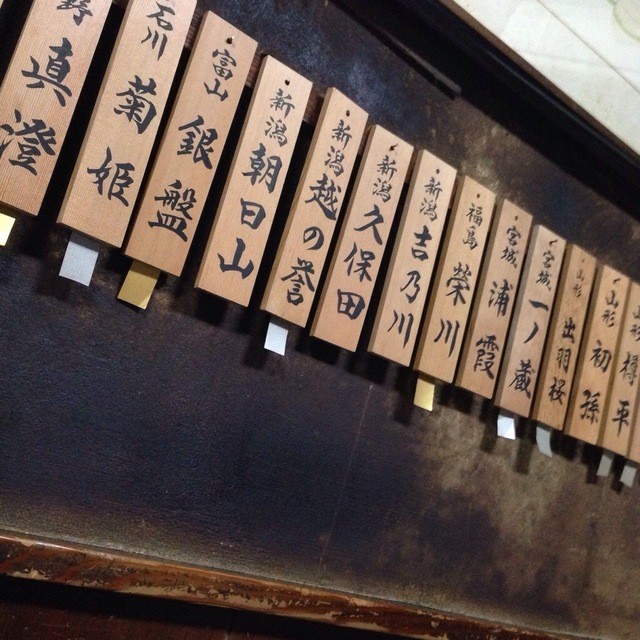 野 真澄
石川 菊姫
富山 銀盤
新潟 朝日山
新潟 越の誉
新潟 久保田
新潟 吉乃川
福島 榮川
宮城 浦霞
宮城 一ノ蔵
山形 出羽桜
山形 初孫
山形 樽平